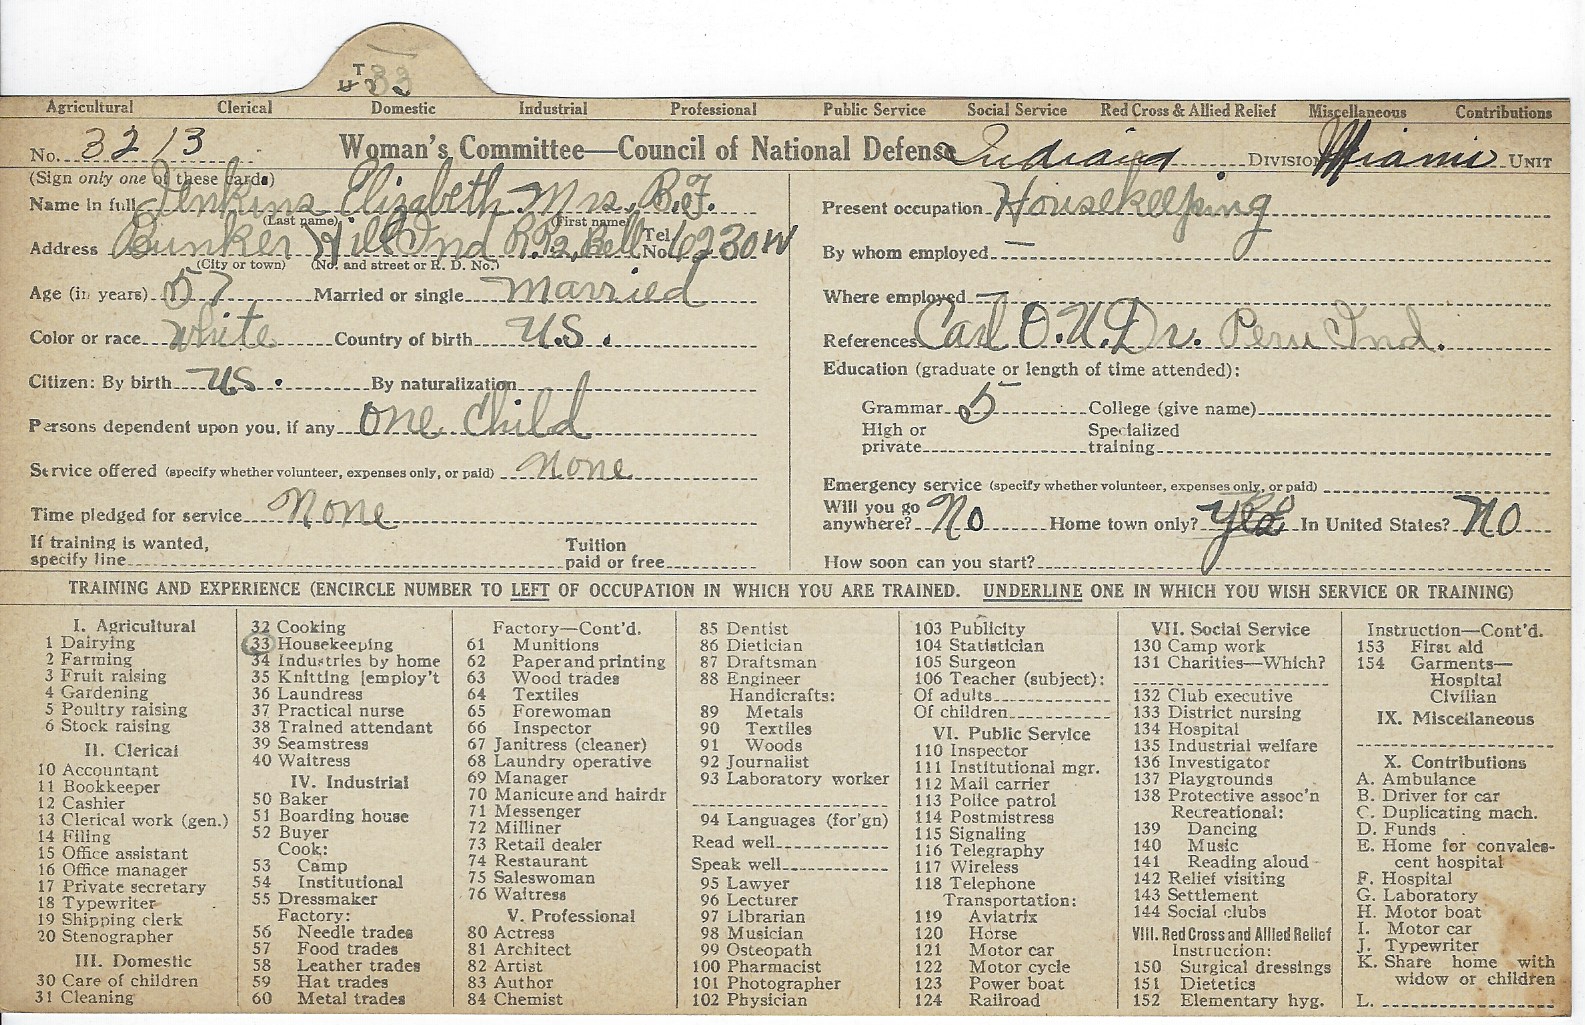 T
33
Agricultural Clerical Domestic Industrial Professional Public Service Social Service Red Cross & Allied Relief Miscellaneous Contributions
No. 3213 Woman's Committee—Council of National Defense Indiana DIVISION Miami UNIT
(Sign only one of these cards)
Name in full Jenkins Elizabeth Mrs. B.F.
(Last name) (First name)
Address Bunker Hill Ind R.R2, Bell Tel. No. 6230W
(City or town) (No. and street or R. D. No.)
Age (in years) 57 Married or single married
Color or race white Country of birth U.S.
Citizen: By birth US. By naturalization
Persons dependent upon you, if any one child
Service offered (specify whether volunteer, expenses only, or paid) none
Time pledged for service None
If training is wanted, specify line Tuition paid or free
Present occupation Housekeeping
By whom employed —
Where employed —
References Carl O.U.Dr. Peru Ind.
Education (graduate or length of time attended):
Grammar 5 College (give name)
High or private Specialized training
Emergency service (specify whether volunteer, expenses only, or paid)
Will you go anywhere? No Home town only? yes In United States? NO
How soon can you start?
TRAINING AND EXPERIENCE (ENCIRCLE NUMBER TO LEFT OF OCCUPATION IN WHICH YOU ARE TRAINED. UNDERLINE ONE IN WHICH YOU WISH SERVICE OR TRAINING)
I. Agricultural
1 Dairying
2 Farming
3 Fruit raising
4 Gardening
5 Poultry raising
6 Stock raising
II. Clerical
10 Accountant
11 Bookkeeper
12 Cashier
13 Clerical work (gen.)
14 Filing
15 Office assistant
16 Office manager
17 Private secretary
18 Typewriter
19 Shipping clerk
20 Stenographer
III. Domestic
30 Care of children
31 Cleaning
32 Cooking
33 Housekeeping
34 Industries by home
35 Knitting [employ't
36 Laundress
37 Practical nurse
38 Trained attendant
39 Seamstress
40 Waitress
IV. Industrial
50 Baker
51 Boarding house
52 Buyer
Cook:
53 Camp
54 Institutional
55 Dressmaker
Factory:
56 Needle trades
57 Food trades
58 Leather trades
59 Hat trades
60 Metal trades
Factory—Cont'd.
61 Munitions
62 Paper and printing
63 Wood trades
64 Textiles
65 Forewoman
66 Inspector
67 Janitress (cleaner)
68 Laundry operative
69 Manager
70 Manicure and hairdr
71 Messenger
72 Milliner
73 Retail dealer
74 Restaurant
75 Saleswoman
76 Waitress
V. Professional
80 Actress
81 Architect
82 Artist
83 Author
84 Chemist
85 Dentist
86 Dietician
87 Draftsman
88 Engineer
Handicrafts:
89 Metals
90 Textiles
91 Woods
92 Journalist
93 Laboratory worker
94 Languages (for'gn)
Read well
Speak well
95 Lawyer
96 Lecturer
97 Librarian
98 Musician
99 Osteopath
100 Pharmacist
101 Photographer
102 Physician
103 Publicity
104 Statistician
105 Surgeon
106 Teacher (subject):
Of adults
Of children
VI. Public Service
110 Inspector
111 Institutional mgr.
112 Mail carrier
113 Police patrol
114 Postmistress
115 Signaling
116 Telegraphy
117 Wireless
118 Telephone
Transportation:
119 Aviatrix
120 Horse
121 Motor car
122 Motor cycle
123 Power boat
124 Railroad
VII. Social Service
130 Camp work
131 Charities—Which?
132 Club executive
133 District nursing
134 Hospital
135 Industrial welfare
136 Investigator
137 Playgrounds
138 Protective assoc'n
Recreational:
139 Dancing
140 Music
141 Reading aloud
142 Relief visiting
143 Settlement
144 Social clubs
VIII. Red Cross and Allied Relief
Instruction:
150 Surgical dressings
151 Dietetics
152 Elementary hyg.
Instruction—Cont'd.
153 First aid
154 Garments—
Hospital
Civilian
IX. Miscellaneous
X. Contributions
A. Ambulance
B. Driver for car
C. Duplicating mach.
D. Funds
E. Home for convales-
cent hospital
F. Hospital
G. Laboratory
H. Motor boat
I. Motor car
J. Typewriter
K. Share home with
widow or children
L.